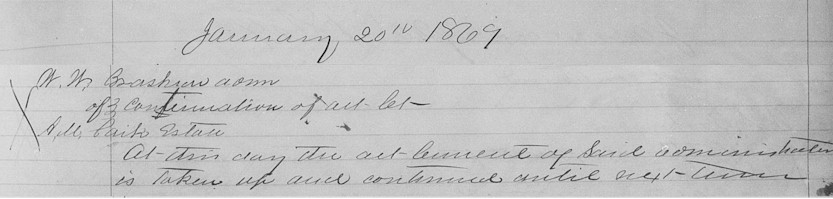 January 20th 1869
W. W. Brashear admr
of } Continuation of act Ct
A. M. Estate
At this day the act Current of Said administrator
is taken up and continued until next term